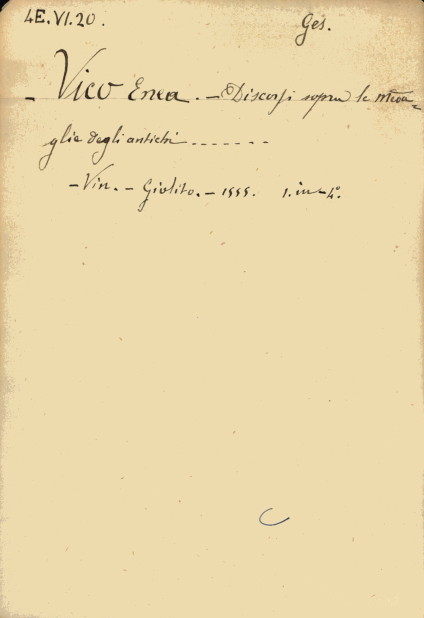 4E.VI.20. Ges.
- Vico Enea. - Discorsi sopra le meda=
glie degli antichi -------
- Vin. - Giolito. - 1555. 1. in 4°.